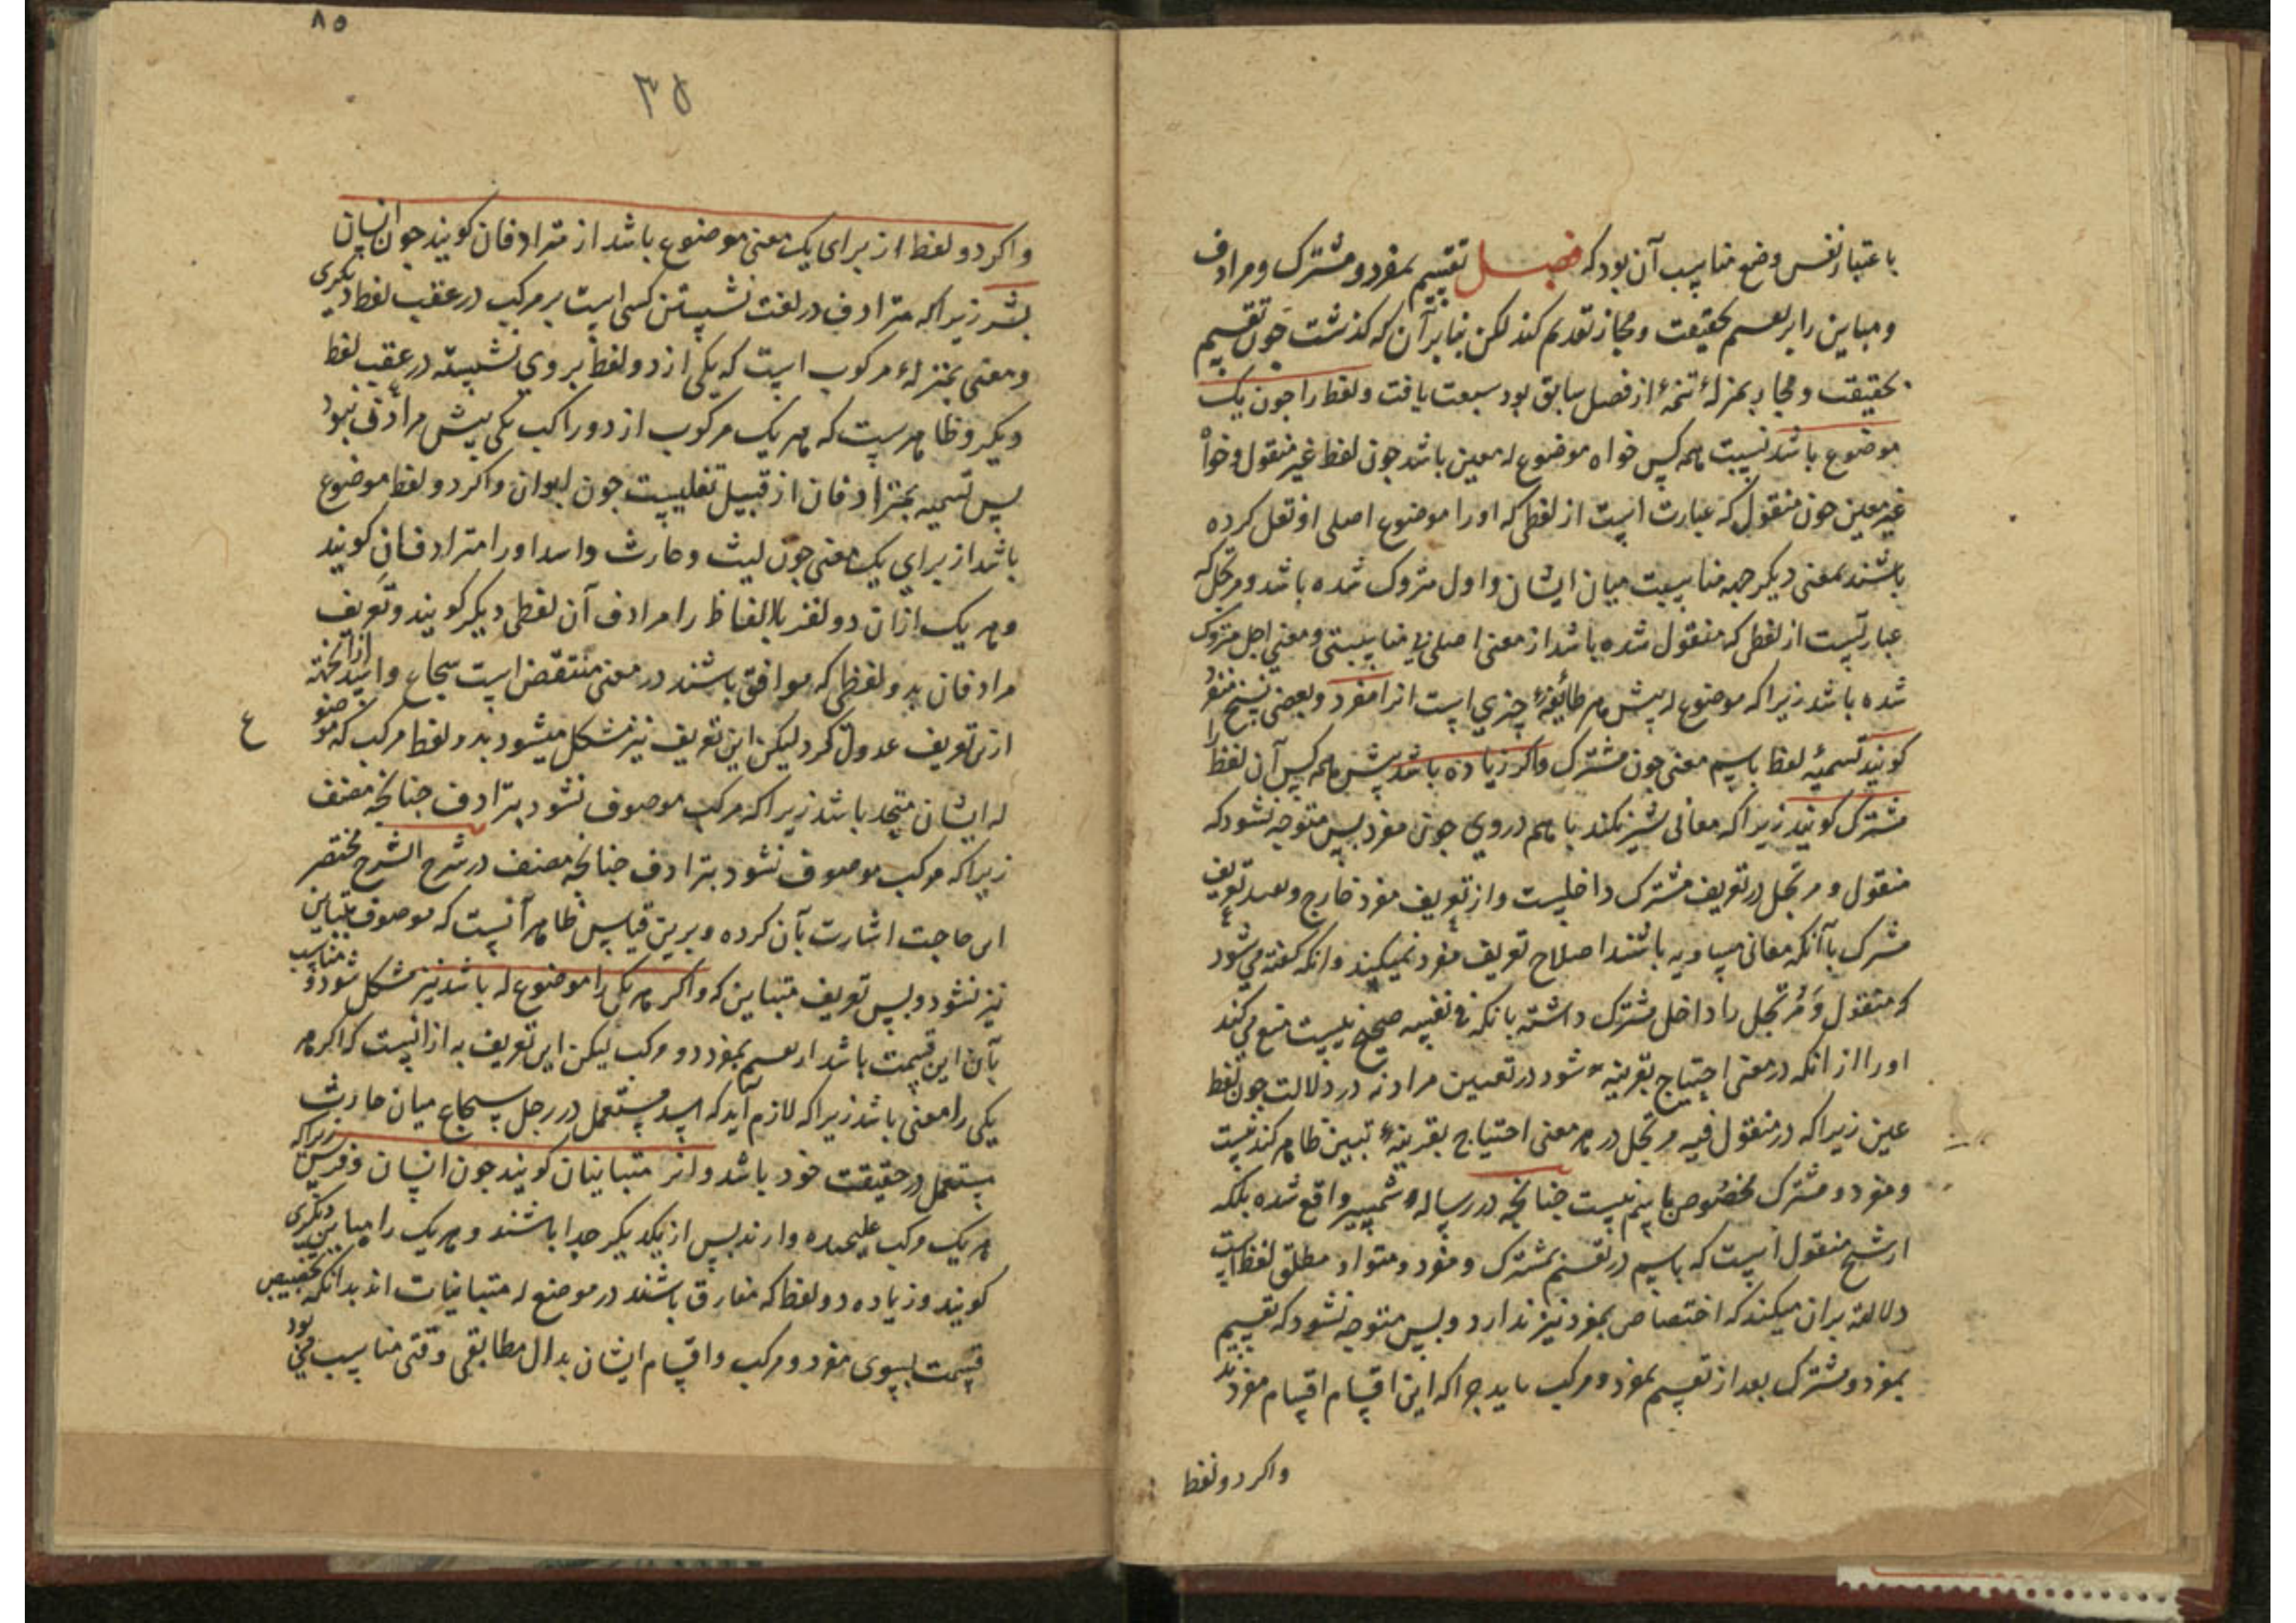 باعتبار نفس وضع مناسب آن بود که فصل تقسیم بمفرد و مشترک و مرادف
و مباین را بر تقسیم بحقیقت و مجاز تقدیم کند لکن بنابر آن که کذشت چون تقسیم
بحقیقت و مجاز بمنزلهٔ تتمهٔ از فصل سابق بود سبقت یافت و لفظ را چون یک
موضوع باشد نسبت بهمه کس خواه موضوع له معین باشد چون لفظ غیر منقول و خواه
غیر معین چون منقول که عبارت است از لفظی که اورا موضوع اصلی او نقل کرده
باشند بمعنی دیکر جهه مناسبت میان ایشان و اول متروک شده باشد و مرتجل که
عبارتست از لفظی که منقول شده باشد از معنی اصلی بی مناسبتی و معنی اصل متروک
شده باشد زیرا که موضوع له پیش هر طائفهٔ چیزی است انرا مفرد و بعضی نسخ منفرد
کویند تسمیهٔ لفظ باسم معنی چون مشترک واکر زیاده باشد پیش همه کس آن لفظ را
مشترک کویند زیرا که معانی شیر نکند با هم دروی چون مفرد پس متوجه نشود که
منقول و مرتجل در تعریف مشترک داخلست و از تعریف مفرد خارج و تعریف
مشرک باآنکه معانی مساویه باشند اصلاح تعریف مفرد نمیکند وانکه کفته می شود
که منقول و مرتجل را داخل مشترک داشته بانکه فی نفسه صحیح نیست منع می کند
اورا از انکه در معنی احتیاج بقرینه شود در تعیین مراد نه در دلالت چون لفظ
عین زیرا که در منقول فیه و مرتجل در هر معنی احتیاج بقرینهٔ تبیین ظاهر کند نیست
و مفرد و مشترک مخصوص باسم نیست چنانچه در رساله شمسیه واقع شده بلکه
از شیخ منقول است که باسم در تقسیم بمشترک و مفرد و متواد مطلق لفظ است
دلالته بران میکند که اختصاص بمفرد نیز ندارد و پس متوجه نشود که تقسیم
بمفرد و مشترک بعد از تقسیم بمفرد و مرکب باید چرا که این اقسام اقسام مفردند
واکر دو لفظ
۸۵
۳۵
واکر دو لفظ از برای یک معنی موضوع باشد از مترادفان کویند چون انسان
بشر زیرا که مترادف در لغت نشستن کسی است بر مرکب در عقب دیکری
و معنی بمنزلهٔ مرکوب است که یکی از دو لفظ بر وی نشسته در عقب لفظ
دیکر و ظاهرست که هر یک مرکوب از دو راکب یکی بیش مرادف نبود
پس تسمیه بمترادفان از قبیل تغلیبست چون ابوان واکر دو لفظ موضوع
باشد از برای یک معنی چون لیث و حارث و اسد اورا مترادفان کویند
و هر یک ازان دو لفظ یا الفاظ را مرادف آن لفظی دیکر کویند و تعریف
مرادفان بدو لفظی که موافق باشند در معنی منتقض است بشجاع و اسد از انجهته
ازین تعریف عدول کرد لیکن این تعریف نیز مشکل میشود بدو لفظ مرکب که موضو
ع
له ایشان متحد باشد زیرا که مرکب موصوف نشود بترادف چنانچه مصنف
زیرا که مرکب موصوف نشود بترادف چنانچه مصنف در شرح الشرح مختصر
ابن حاجت اشارت بآن کرده و برین قیاس ظاهر آنست که موصوف بتباین
نیز نشود و پس تعریف متباین که واکر هر یکی را موضوع له باشد نیز مشکل شود و مناسب
بآن این قسمت باشد از تقسیم بمفرد و مرکب لیکن این تعریف به از انست که اکر هر
یکی را معنی باشد زیرا که لازم آید که اسد مستعمل در رجل شجاع میان حارث
مستعمل در حقیقت خود باشد و انرا متباینان کویند چون انسان و فرس زیرا که
هر یک مرکب علیحده دارند پس از یکدیکر جدا باشند و هر یک را مباین دیکری
کویند و زیاده دو لفظ که مفارق باشند در موضع له متباینات اند بدانکه تخصیص
قسمت بسوی مفرد و مرکب و اقسام ایشان بدال مطابقی وقتی مناسب می بود